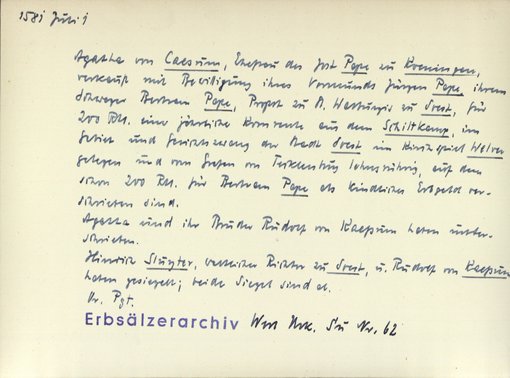 1581 Juli 1
Agatha von Caesum, Ehefrau des Jost Pape zu Koeningen,
verkauft mit Bewilligung ihres Vormunds Jürgen Pape, ihrem
Schwager Bertram Pape, Propst zu St. Walburgis zu Soest, für
200 Rtl. eine jährliche Kornrente aus dem Schiltkamp, im
Gebiet und Gerichtszwang der Stadt Soest im Kirchspiel Welver
gelegen und vom Grafen von Tecklenburg lehnsrührig, auf dem
schon 200 Rtl. für Bertram Pape als kindliches Erbgeld ver-
schrieben sind.
Agatha und ihr Bruder Rudolf von Kaepsum haben unter-
schrieben.
Hinrich Sluyter, weltlicher Richter zu Soest, u. Rudolf von Kaepsum
haben gesiegelt; beide Siegel sind ab.
Or. Pgt.
Erbsälzerarchiv Werl Urk. Su Nr. 62